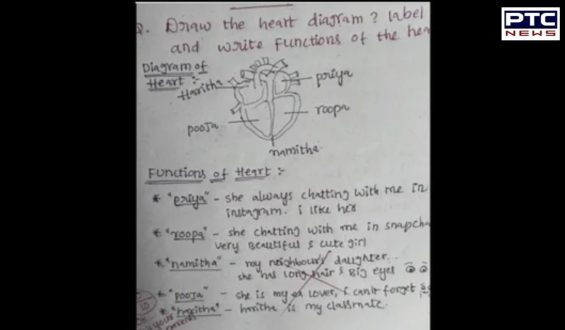 PTC
NEWS
Q. Draw the heart diagram? label
and write functions of the
Diagram of
Heart :-
Haritha
priya
roopa
pooja
namitha
Functions of Heart :-
* "priya" - she always chatting with me in
instagram. i like her
* "roopa" - she chatting with me in
very Beautiful & cute girl
* "namitha" - my neighbour's daughter.
she has long hair & Big eyes
* "pooja" - she is my ex lover, i can't forget
* "haritha" - haritha is my classmate.